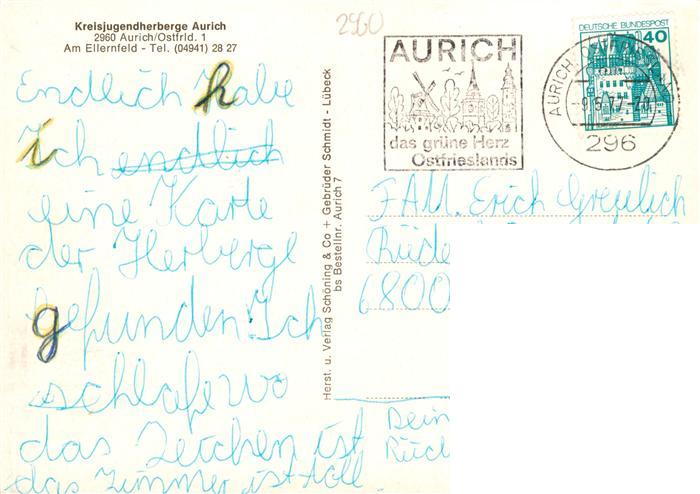 Kreisjugendherberge Aurich
2960 Aurich/Ostfrld. 1
Am Ellernfeld - Tel. (04941) 28 27
2960
AURICH
das grüne Herz
Ostfrieslands
DEUTSCHE BUNDESPOST
40
AURICH, OSTFRIESL
-9.5.77.-20
296
Endlich habe
ich endlich
eine Karte
der Herberge
gefunden. Ich
schlafe wo
das Zeichen ist
das Zimmer ist toll.
Herst. u. Verlag Schöning & Co + Gebrüder Schmidt - Lübeck
bs Bestellnr. Aurich 7
FAM. Erich Greulich
Rüde
6800
Dein
Rück